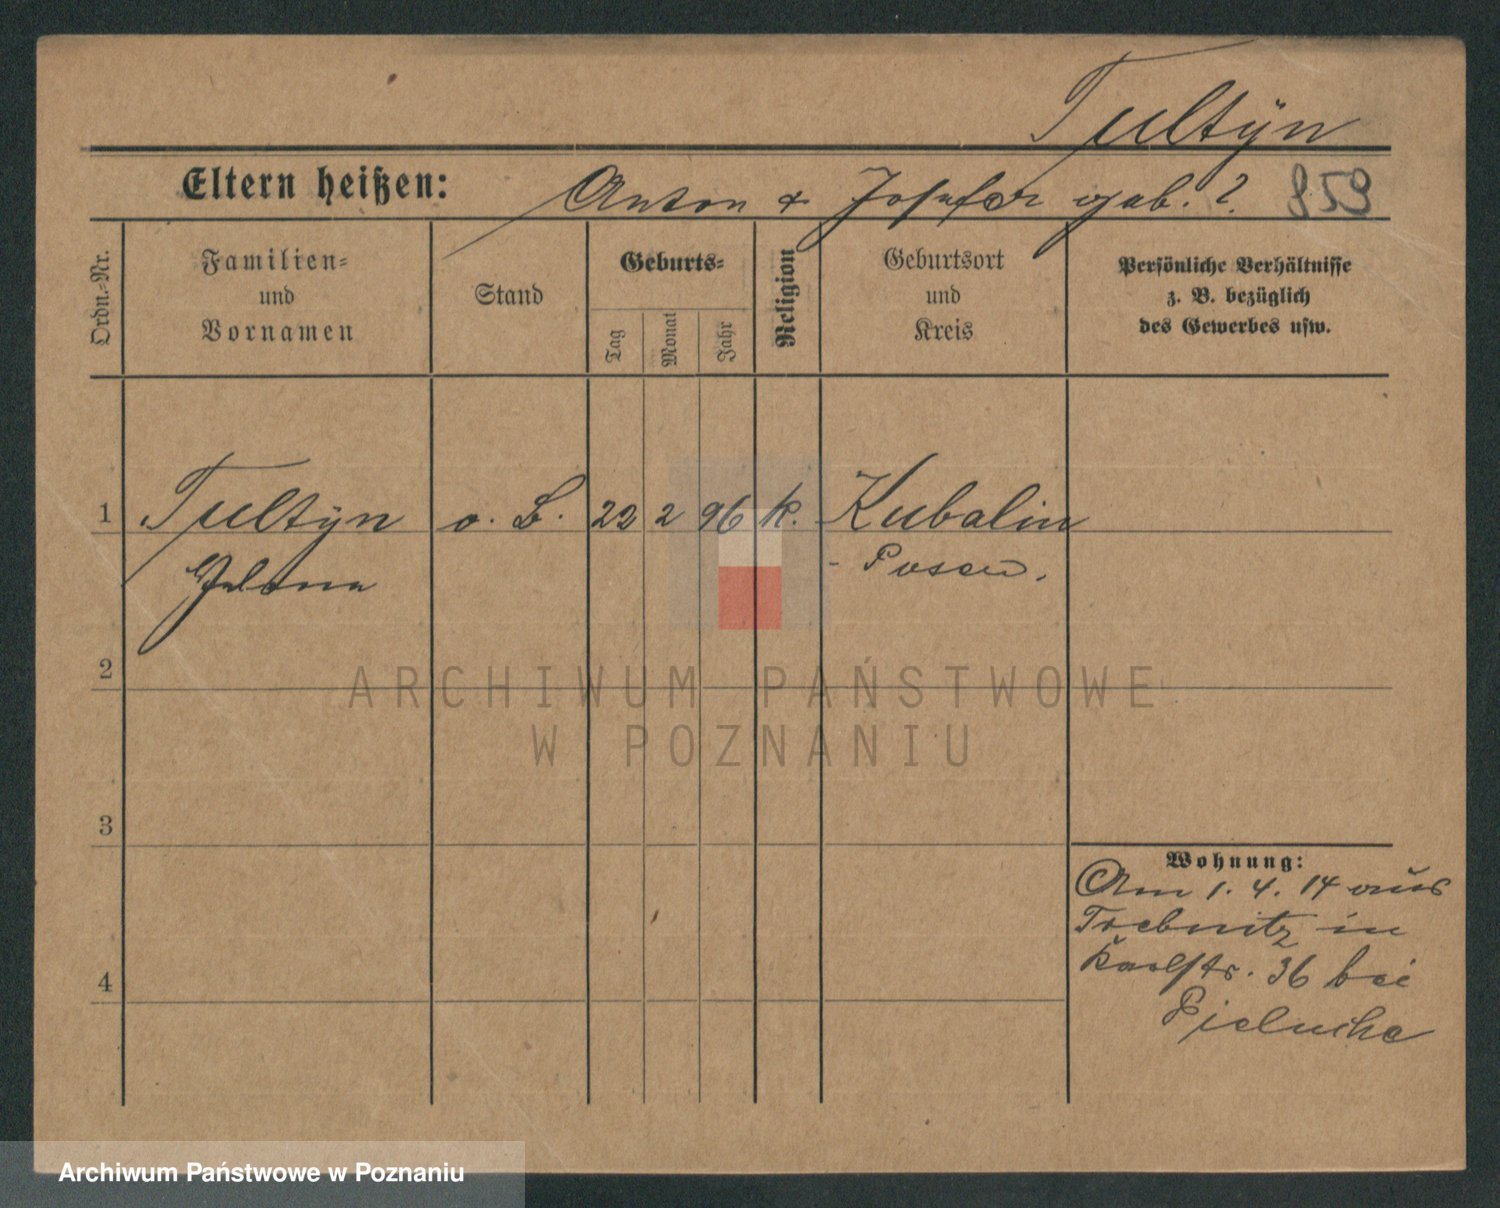 Tultÿn
Eltern heißen: Anton & Josefa geb. ? 859
Ordn.-Nr.
Familien=
und
Vornamen
Stand
Geburts=
Tag
Monat
Jahr
Religion
Geburtsort
und
Kreis
Persönliche Verhältnisse
z. B. bezüglich
des Gewerbes usw.
1 Tultÿn o. B. 22 2 96 k. Kubalin
- Posen.
2
ARCHIWUM PAŃSTWOWE
W POZNANIU
3
Wohnung:
Am 1. 4. 14 aus
Trebnitz in
Karlstr. 36 bei
4
Archiwum Państwowe w Poznaniu